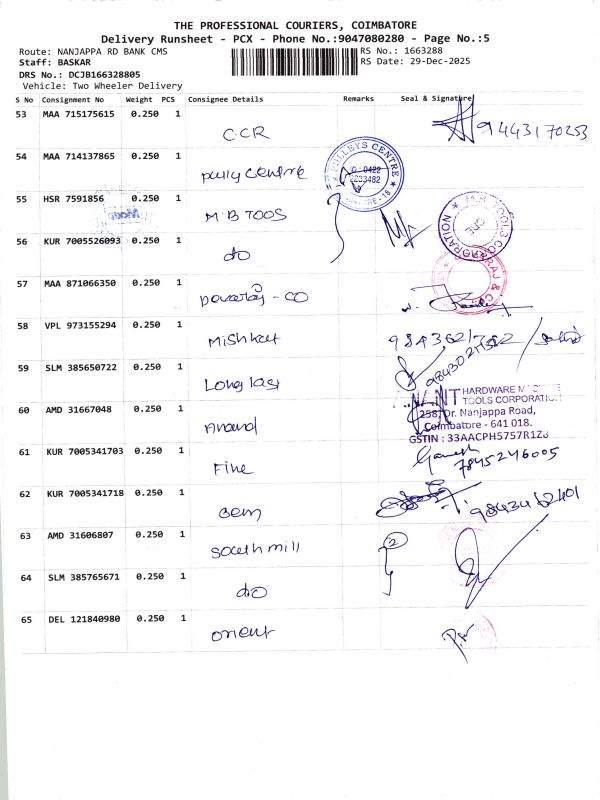 THE PROFESSIONAL COURIERS, COIMBATORE
Delivery Runsheet - PCX - Phone No.:9047080280 - Page No.:5
Route: NANJAPPA RD BANK CMS RS No.: 1663288
Staff: BASKAR RS Date: 29-Dec-2025
DRS No.: DCJB166328805
Vehicle: Two Wheeler Delivery
S No Consignment No Weight PCS Consignee Details Remarks Seal & Signature
53 MAA 715175615 0.250 1 C.CR 9443170253
54 MAA 714137865 0.250 1 pully centre PULLEYS CENTRE
55 HSR 7591856 0.250 1 M.B TOOS
56 KUR 7005526093 0.250 1 do
57 MAA 871066350 0.250 1 - CO
58 VPL 973155294 0.250 1 Mishkat
59 SLM 385650722 0.250 1 Long last
60 AMD 31667048 0.250 1 Anand
ANANT HARDWARE MACHINE
TOOLS CORPORATION
258, Dr. Nanjappa Road,
Coimbatore - 641 018.
GSTIN : 33AACPH5757R1Z8
61 KUR 7005341703 0.250 1 Fine Ganesh 7845246005
62 KUR 7005341718 0.250 1 Gem
63 AMD 31606807 0.250 1 South mill 2
64 SLM 385765671 0.250 1 do
65 DEL 121840980 0.250 1 orient